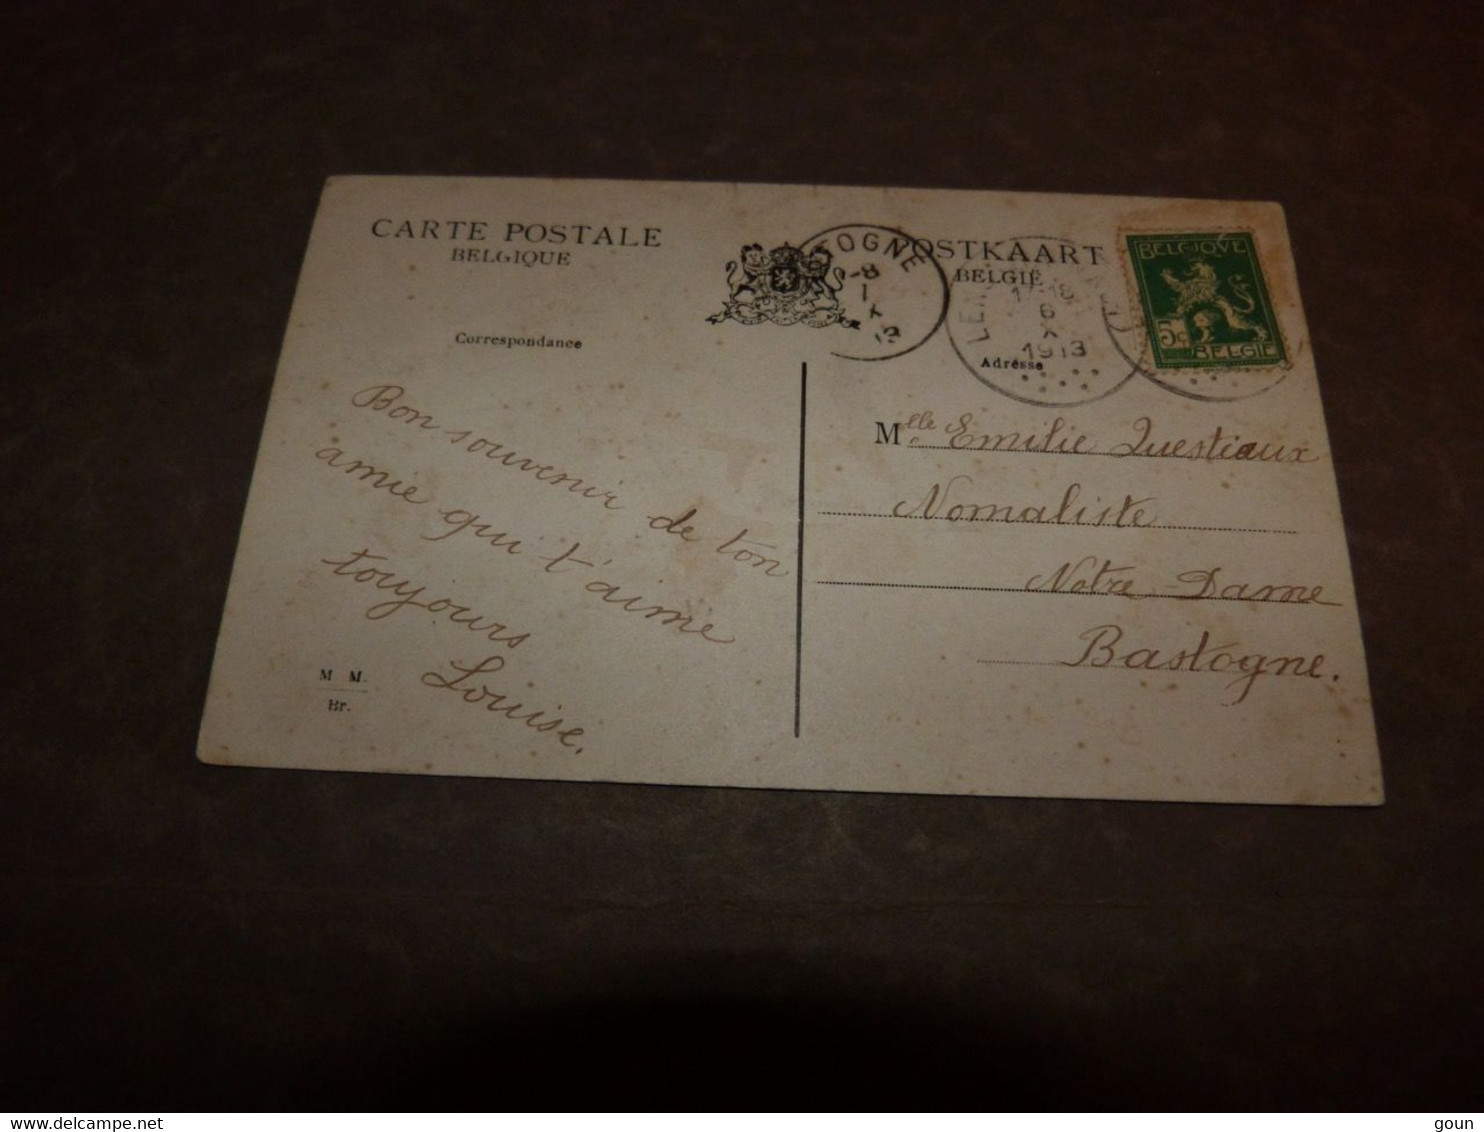 CARTE POSTALE
BELGIQUE
POSTKAART
BELGIË
BELGIQVE
5c
BELGIE
TOGNE
8
X
13
LEN
18
6
X
1913
Correspondance
Adresse
Bon souvenir de ton
amie qui t'aime
toujours
Louise.
Mlle Emilie Questiaux
Nomaliste
Notre Dame
Bastogne.
M M.
Br.
www.delcampe.net
goun